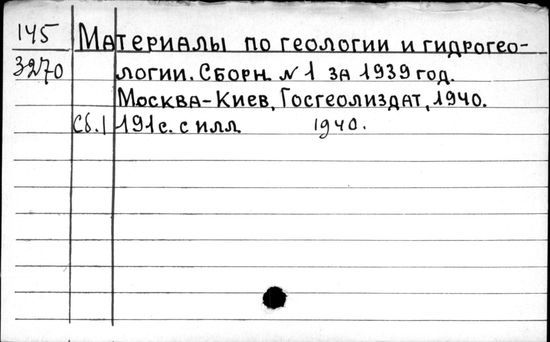 145 Материалы по геологии и гидрогео-
3270 логии. Сборн. №1 за 1939 год.
Москва-Киев, Госгеолиздат, 1940.
Сб.1 191с. с илл. 1940.